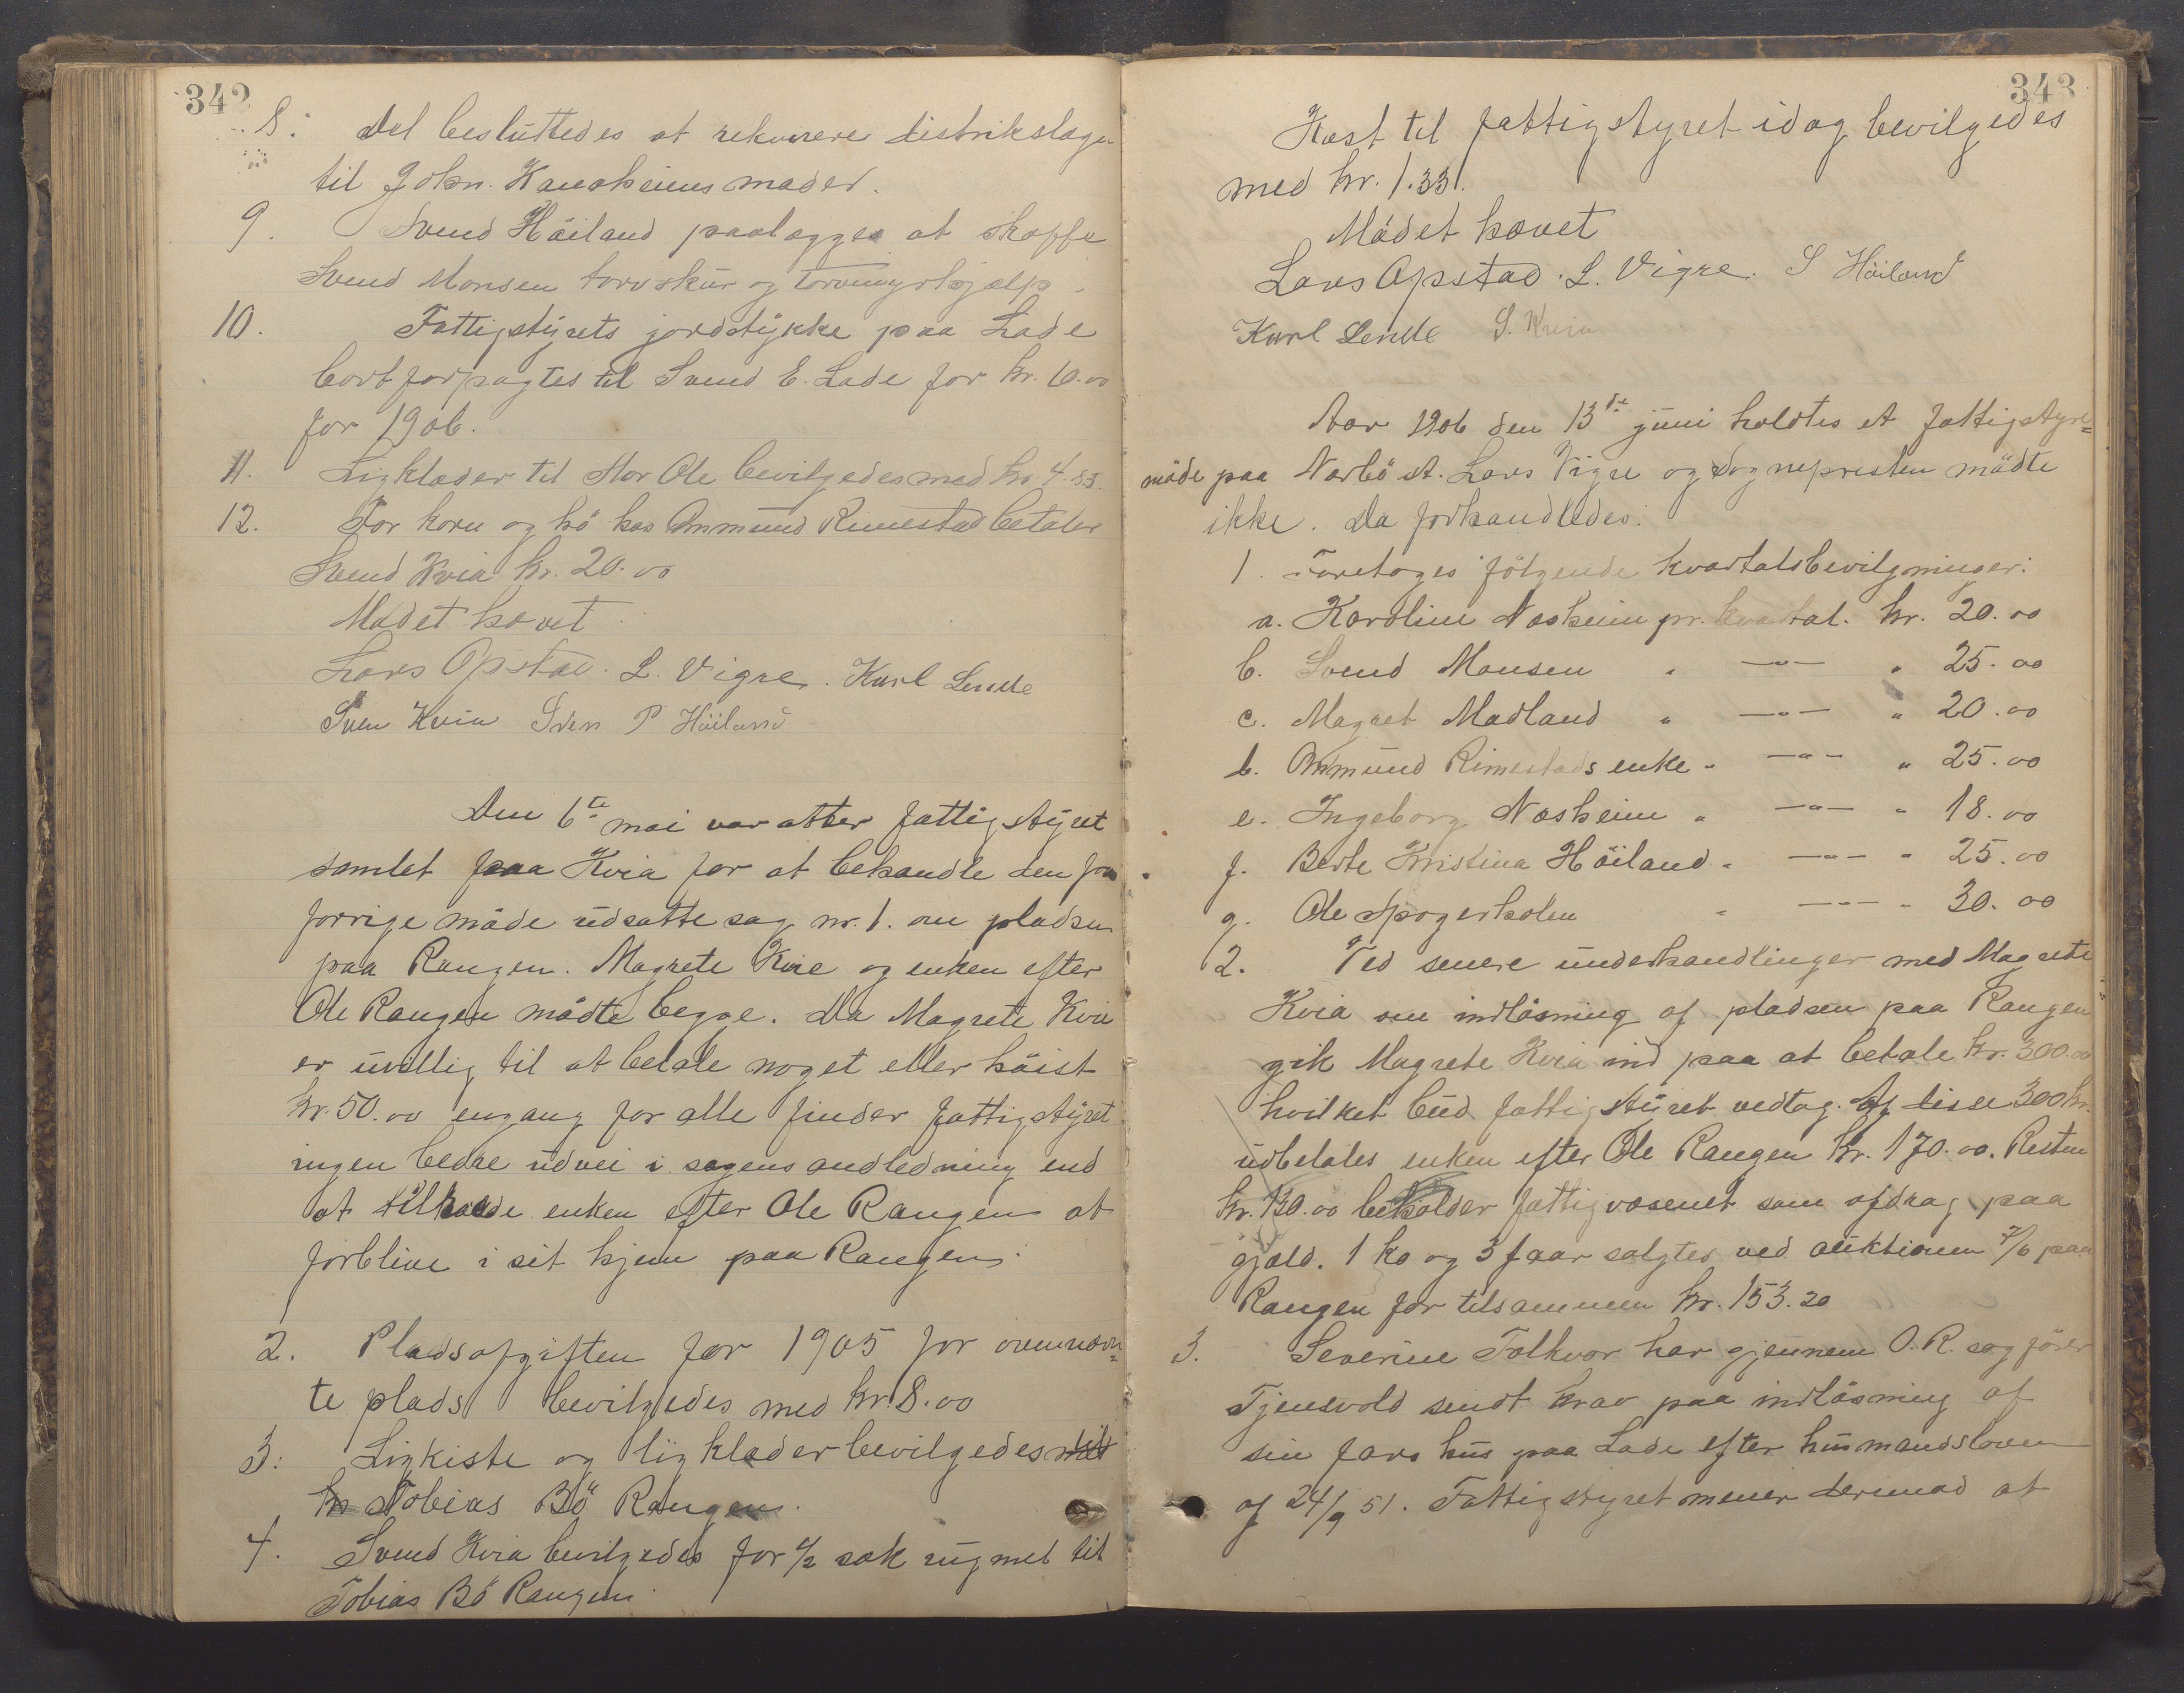 342
8. Det besluttedes at rekvirere distrikslægen
til John Kanaheims moder.
9. Svend Höiland paalægges at skaffe
Svend Monsen torvskur og torvmyrshjælp.
10. Fattigstyrets jordstykke paa Lade
bortforpagtes til Svend E. Lade for kr. 10.00
for 1906.
11. Ligklæder til Stor Ole bevilgedes med kr. 4.83.
12. For korn og hö hos Ommund Rimestad betaler
Svend Kvia kr. 20.00
Mödet hævet
Lars Opstad. L. Vigre. Karl Lende
Sven Kvia Sven P Höiland
Den 6te mai var atter fattigstyret
samlet paa Kvia for at behandle den fra
forrige möde udsatte sag nr. 1. om pladsen
paa Rangen. Magrete Kvie og enken efter
Ole Rangen mödte begge. Da Magrete Kvie
er uvillig til at betale noget eller höist
kr. 50.00 engang for alle finder fattigstyret
ingen bedre udvei i sagens andledning end
at tilholde enken efter Ole Rangen at
forblive i sit hjem paa Rangen.
2. Pladsafgiften for 1905 for ovennævn=
te plads bevilgedes med kr. 8.00
3. Ligkiste og ligklæder bevilgedes till
kr Tobias Bö Rangen.
4. Svend Kvia bevilgedes for 1/2 sæk rugmel til
Tobias Bö Rangen.
343
Kost til fattigstyret idag bevilgedes
med kr. 1.33.
Mödet hævet
Lars Opstad. L. Vigre. S Höiland
Karl Lende S. Kvia
Aar 1906 den 13de juni holdtes et fattigstyre=
möde paa Nærbö st. Lars Vigre og Sognepresten mödte
ikke. Da forhandledes:
1. Foretoges fölgende kvartalsbevilgninger:
a. Karoline Næsheim pr. kvartal. kr. 20.00
b. Svend Monsen " —"— " 25.00
c. Magret Madland " —"— " 20.00
d. Ommund Rimestads enke " —"— " 25.00
e. Ingeborg Næsheim " —"— " 18.00
f. Berte Kristina Höiland " —"— " 25.00
g. Ole " —"— " 30.00
2. Ved senere underhandlinger med Magrete
Kvia om indlösning af pladsen paa Rangen
gik Magrete Kvia ind paa at betale kr. 300.00
hvilket bud fattigstyret vedtog. Af disse 300 kr.
udbetales enken efter Ole Rangen kr. 170.00. Resten
kr. 130.00 beholder fattigvæsenet som afdrag paa
gjæld. 1 ko og 3 faar solgtes ved auktionen 7/6 paa
Rangen for tilsammen kr. 153.20
3. Severine Folkvor har gjennem O.R. sagförer
Tjensvold sendt krav paa indlösning af
sin fars hus paa Lade efter husmandsloven
af 24/9 51. Fattigstyret mener derimod at